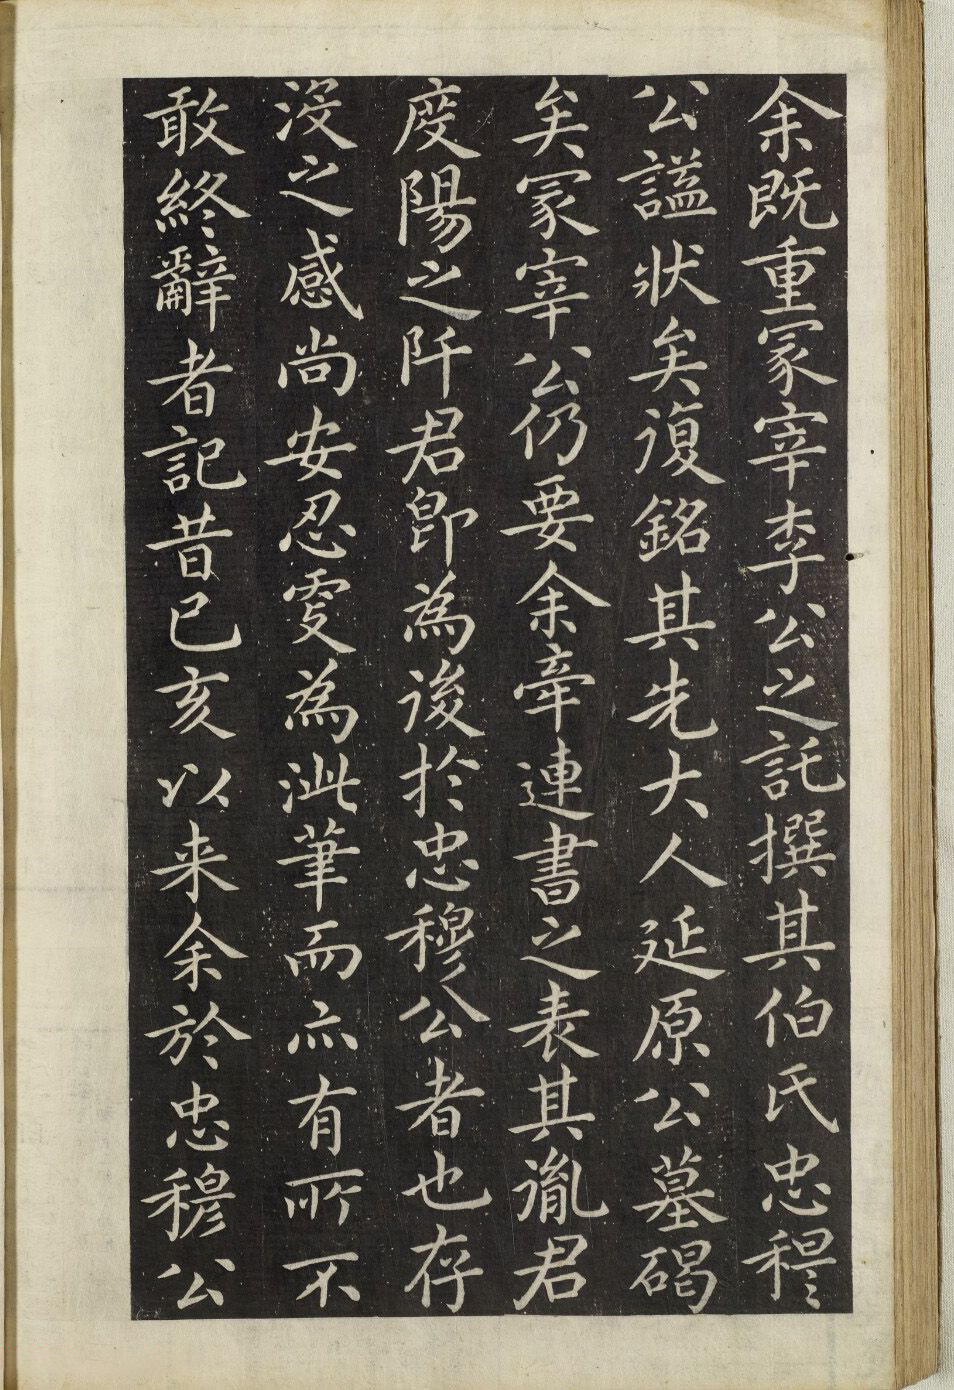 余既重冢宰李公之託撰其伯氏忠穆
公謚狀矣復銘其先大人延原公墓碣
矣冢宰公仍要余牽連書之表其胤君
度陽之阡君卽為後於忠穆公者也存
沒之感尚安忍雯為泚筆而亦有所不
敢終辭者記昔已亥以来余於忠穆公